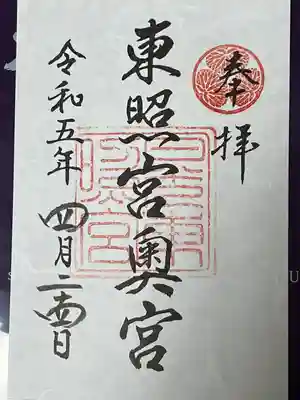 奉拝
東照宮奥宮
令和五年四月二十四日